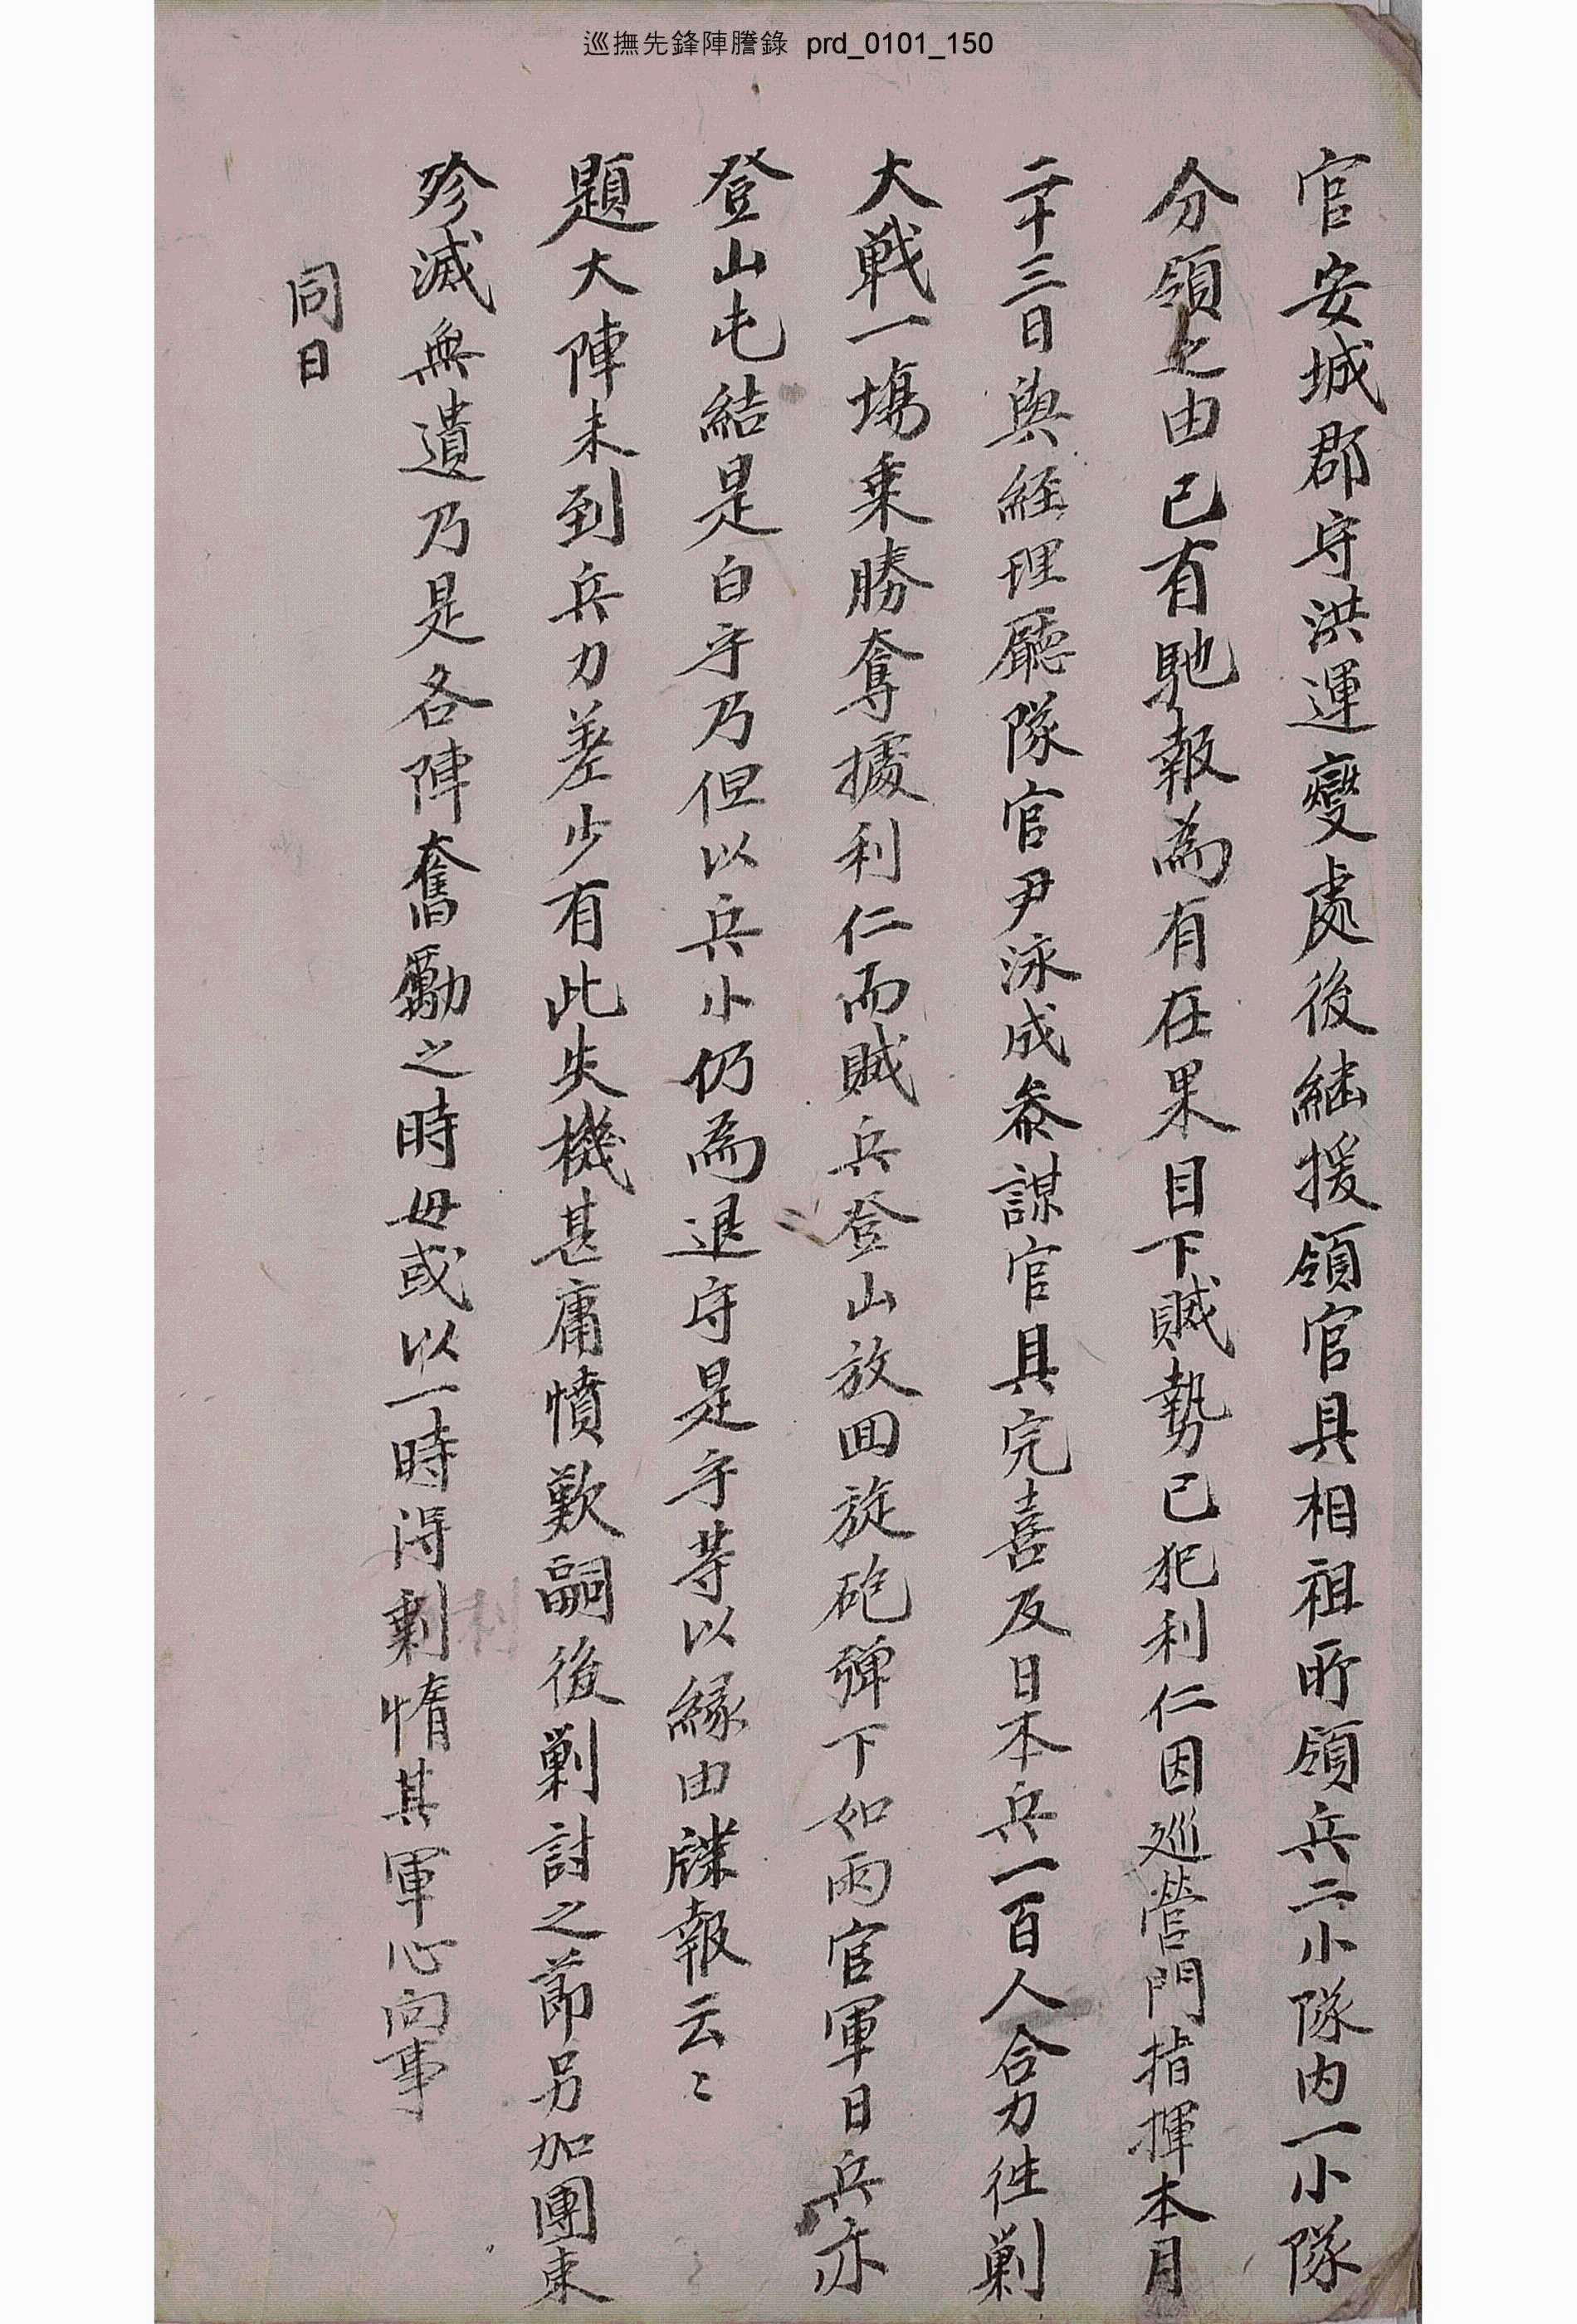 巡撫先鋒陣謄錄 prd_0101_150
官安城郡守洪運燮處後継援領官具相祖所領兵二小隊內一小隊
分領之由已有馳報為有在果目下賊勢已犯利仁因巡營門指揮本月
二十三日與経理廳隊官尹泳成叅謀官具完喜及日本兵一百人合力徃剿
大戦一塲乗勝奪據利仁而賊兵登山放回旋砲彈下如雨官軍日兵亦
登山屯結是白乎乃但以兵小仍為退守是乎等以緣由牒報云々
題大陣未到兵力差少有此失機甚庸憤歎嗣後剿討之節另加團束
殄滅無遺乃是各陣奮勵之時毋或以一時得剿惰其軍心向事
同日